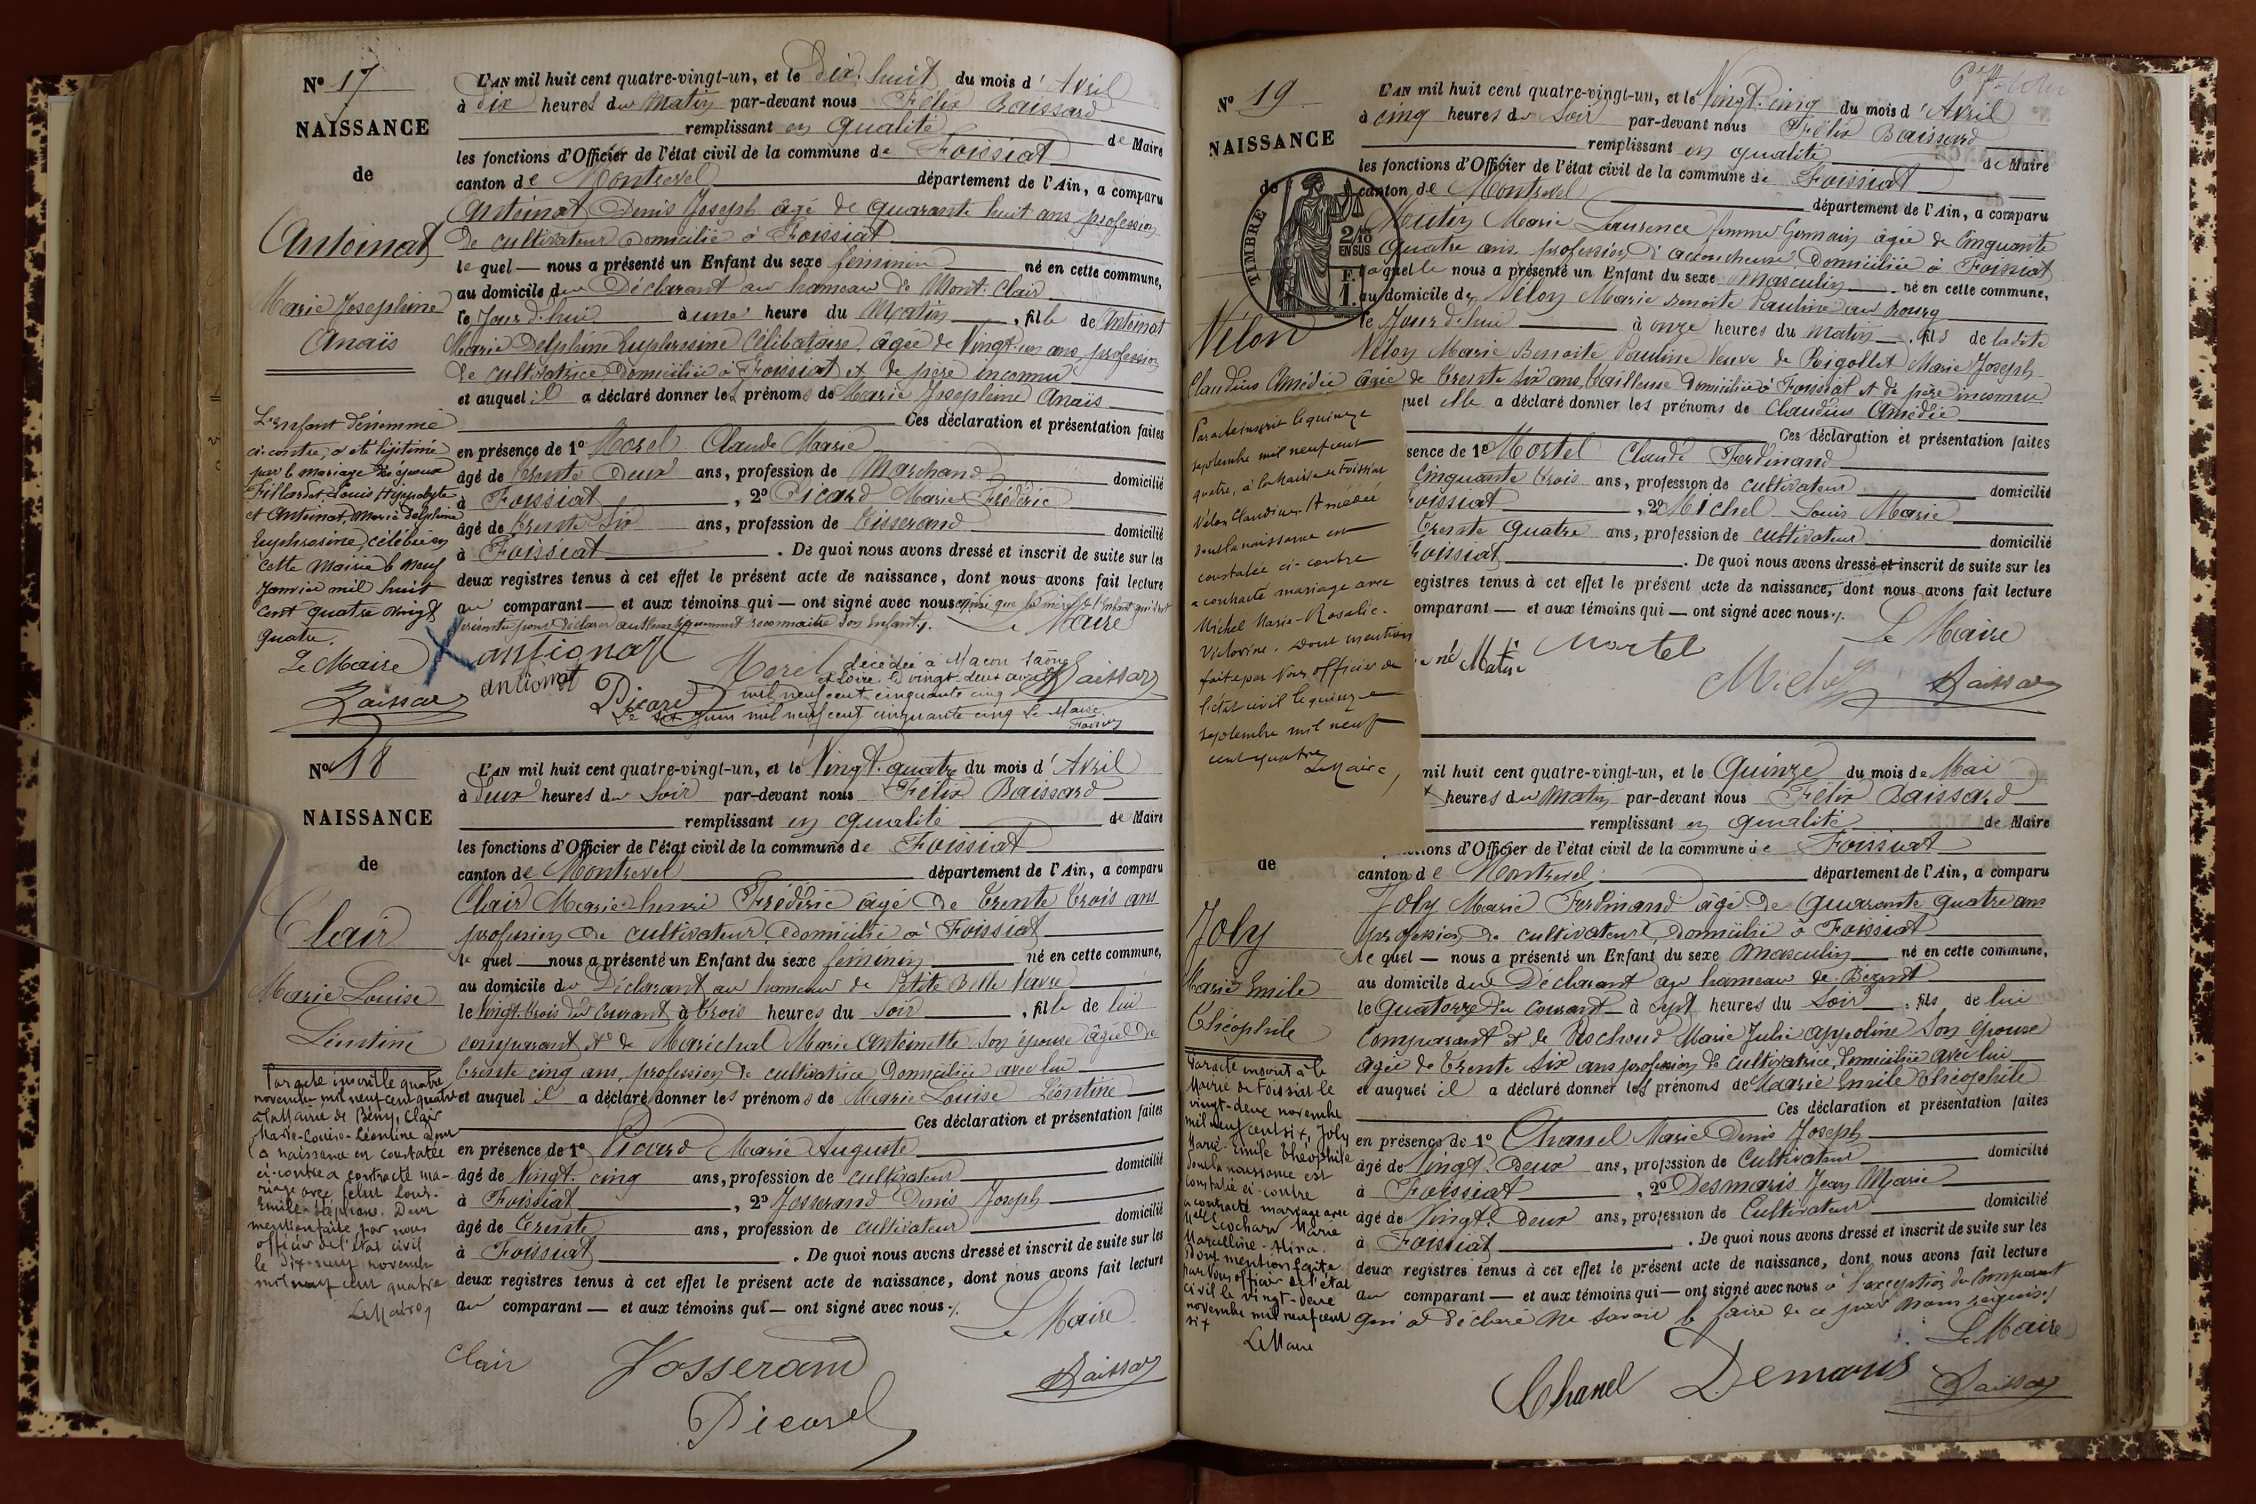 N° 17
NAISSANCE
de
Antoinat
Marie Josephine
Anaïs
L'enfant dénommé
ci-contre, a été légitimé
par le mariage des époux
Fillardet Louis Hyppolyte
et Antoinat, Marie Delphine
Euphrosine, célébré en
cette Mairie le neuf
Janvier mil huit
cent quatre vingt
quatre.
Le Maire
L'AN mil huit cent quatre-vingt-un, et le Dix huit du mois d'Avril
à dix heures du Matin par-devant nous Félix Baissard
remplissant en qualité de Maire
les fonctions d'Officier de l'état civil de la commune de Foissiat
canton de Montrevel département de l'Ain, a comparu
Antoinat Denis Joseph âgé de quarante huit ans profession
de cultivateur domicilié à Foissiat
lequel — nous a présenté un Enfant du sexe féminin né en cette commune,
au domicile du Déclarant au hameau de Mont-Clair
le Jour d'hui à une heure du Matin, fille de Antoinat
Marie Delphine Euphrosine Célibataire âgée de Vingt un ans profession
de cultivatrice, Domiciliée à Foissiat et de père inconnu
et auquel il a déclaré donner les prénoms de Marie Josephine Anaïs
Ces déclaration et présentation faites
en présence de 1° Morel Claude Marie
âgé de trente deux ans, profession de Marchand domicilié
à Foissiat, 2° Picard Marie Frédéric
âgé de trente six ans, profession de Tisserand domicilié
à Foissiat. De quoi nous avons dressé et inscrit de suite sur les
deux registres tenus à cet effet le présent acte de naissance, dont nous avons fait lecture
au comparant — et aux témoins qui — ont signé avec nous ainsi que la mère de l'Enfant qui s'est
Le Maire
antignat
antoinat
Picard
Morel
Baissard
décédée à Macon Saône
et Loire le vingt deux avril
mil neuf cent cinquante cinq
Le juin mil neuf cent cinquante cinq Le Maire
N° 18
NAISSANCE
de
Clair
Marie Louise
Léontine
Par acte inscrit le quatre
novembre mil neuf cent quatre
à la Mairie de Bény, Clair
Marie-Louise-Léontine dont
la naissance est constatée
ci-contre a contracté ma-
riage avec
officier de l'état civil
le dix-neuf novembre
mil neuf cent quatre
Le Maire,
L'AN mil huit cent quatre-vingt-un, et le Vingt-quatre du mois d'Avril
à Deux heures du Soir par-devant nous Félix Baissard
remplissant en qualité de Maire
les fonctions d'Officier de l'état civil de la commune de Foissiat
canton de Montrevel département de l'Ain, a comparu
Clair Marie henri Frédéric âgé de trente trois ans
profession de cultivateur, Domicilié à Foissiat
lequel — nous a présenté un Enfant du sexe féminin né en cette commune,
au domicile du Déclarant au hameau de Petite Belle Vavre
le Vingt trois du courant à trois heures du Soir, fille de lui
comparant et de Maréchal Marie Antoinette son épouse âgée de
trente cinq ans, profession de cultivatrice Domiciliée avec lui
et auquel il a déclaré donner les prénoms de Marie Louise Léontine
Ces déclaration et présentation faites
en présence de 1° Picard Marie Auguste
âgé de Vingt cinq ans, profession de cultivateur domicilié
à Foissiat, 2° Josserand Denis Joseph
âgé de trente ans, profession de cultivateur domicilié
à Foissiat. De quoi nous avons dressé et inscrit de suite sur les
deux registres tenus à cet effet le présent acte de naissance, dont nous avons fait lecture
au comparant — et aux témoins qui — ont signé avec nous.
Le Maire
Clair Josserand
Baissard
Picard
N° 19
NAISSANCE
de
TIMBRE
2/10
EN SUS
1 F.
Vélon
Claudius Amédée
Par acte inscrit le quinze
septembre mil neuf cent
quatre, à la Mairie de Foissiat
Vélon Claudius-Amédée
dont la naissance est
constatée ci-contre
a contracté mariage avec
Michel Marie-Rosalie-
Victorine. Dont mention
faite par Nous officier de
l'état civil le quinze
septembre mil neuf
cent quatre
Le Maire,
L'AN mil huit cent quatre-vingt-un, et le Vingt-cinq du mois d'Avril
à cinq heures du Soir par-devant nous Félix Baissard
remplissant en qualité de Maire
les fonctions d'Officier de l'état civil de la commune de Foissiat
canton de Montrevel département de l'Ain, a comparu
Mutin Marie Laurence femme Germain âgée de Cinquante
quatre ans, profession d'accoucheuse Domiciliée à Foissiat
laquelle nous a présenté un Enfant du sexe Masculin né en cette commune,
au domicile de Vélon Marie Benoite Pauline au Bourg
le Jour d'hui à onze heures du matin, fils de ladite
Vélon Marie Benoite Pauline Veuve de Rigollet Marie Joseph
âgée de trente six ans, tailleuse Domiciliée à Foissiat et de père inconnu
quel elle a déclaré donner les prénoms de Claudius Amédée
Ces déclaration et présentation faites
sence de 1° Mortel Claude Ferdinand
Cinquante trois ans, profession de cultivateur domicilié
Foissiat, 2° Michel Louis Marie
trente quatre ans, profession de cultivateur domicilié
Foissiat. De quoi nous avons dressé et inscrit de suite sur les
egistres tenus à cet effet le présent acte de naissance, dont nous avons fait lecture
omparant — et aux témoins qui — ont signé avec nous.
Le Maire
Mortel
Michel
Baissard
de
Joly
Marie Emile
Théophile
Par acte inscrit à la
Mairie de Foissiat le
vingt-deux novembre
mil neuf cent six, Joly
Marie-Emile Théophile
dont la naissance est
constatée ci-contre
a contracté mariage avec
Marie
Marcelline-Alina.
Dont mention faite
par Nous officier de l'état
civil le vingt-deux
novembre mil neuf cent
six
Le Maire
mil huit cent quatre-vingt-un, et le Quinze du mois de Mai
heures du Matin par-devant nous Félix Baissard
remplissant en qualité de Maire
ctions d'Officier de l'état civil de la commune de Foissiat
canton de Montrevel département de l'Ain, a comparu
Joly Marie Ferdinand âgé de quarante quatre ans
profession de cultivateur, Domicilié à Foissiat
lequel — nous a présenté un Enfant du sexe Masculin né en cette commune,
au domicile du Déclarant au hameau de
le Quatorze du courant à Sept heures du Soir, fils de lui
Comparant et de Rochend Marie Julie Appoline son épouse
âgée de trente six ans profession de cultivatrice, Domiciliée avec lui
et auquel il a déclaré donner les prénoms de Marie Emile Théophile
Ces déclaration et présentation faites
en présence de 1° Chanel Marie Denis Joseph
âgé de Vingt-Deux ans, profession de Cultivateur domicilié
à Foissiat, 2° Desmaris Jean Marie
âgé de Vingt-Deux ans, profession de Cultivateur domicilié
à Foissiat. De quoi nous avons dressé et inscrit de suite sur les
deux registres tenus à cet effet le présent acte de naissance, dont nous avons fait lecture
au comparant — et aux témoins qui — ont signé avec nous à l'exception du Comparant
qui a déclaré ne savoir le faire de ce par nous requis
Le Maire
Chanel Demaris
Baissard